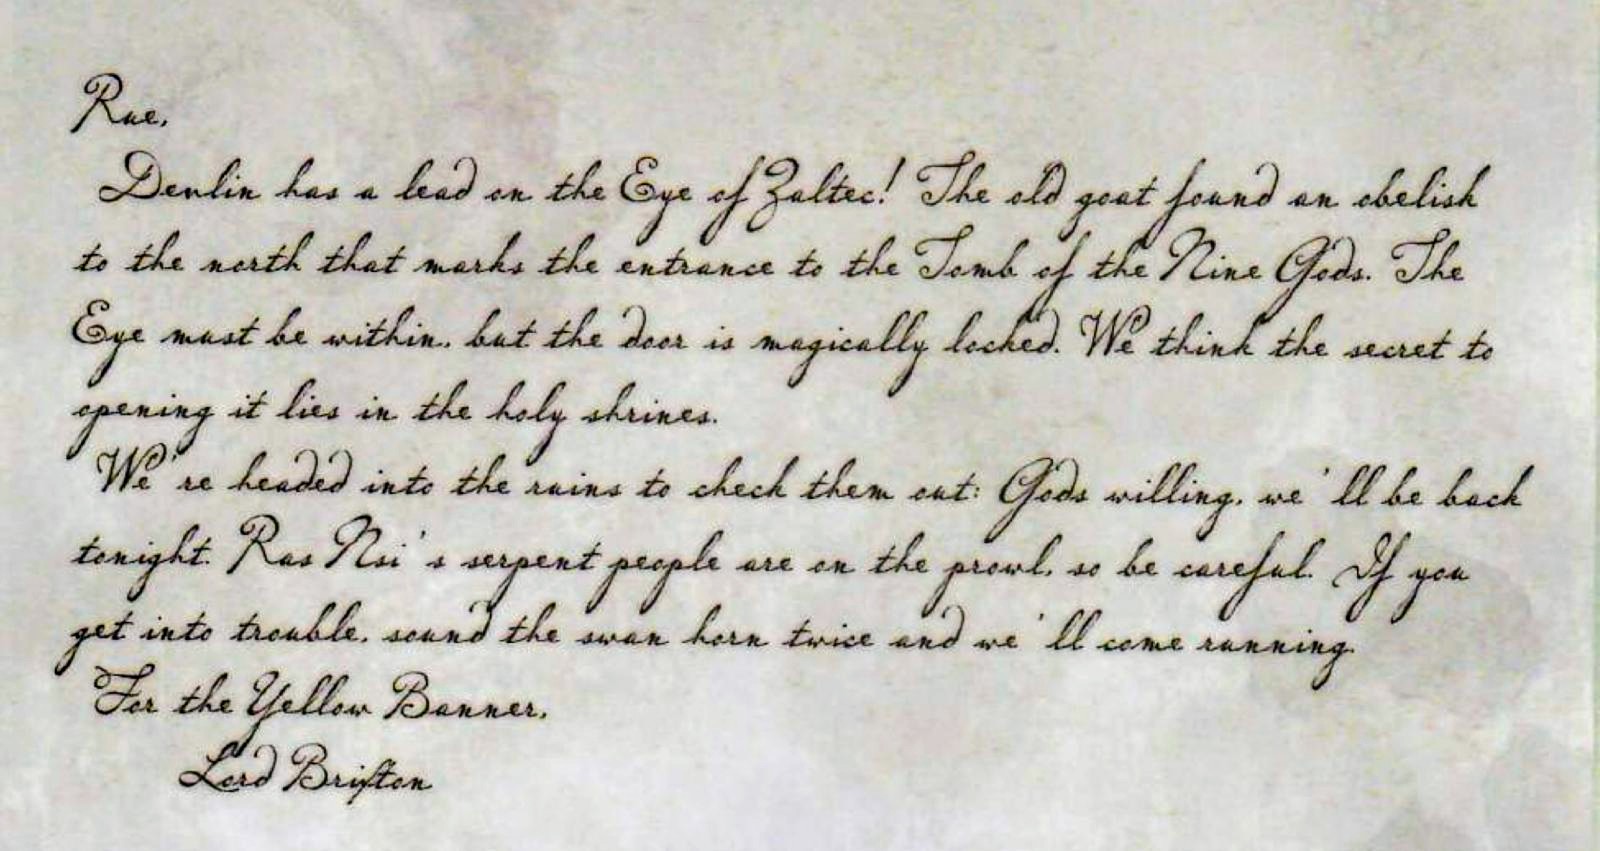 Rue,
Devlin has a lead on the Eye of Zaltec! The old goat found an obelisk
to the north that marks the entrance to the Tomb of the Nine Gods. The
Eye must be within, but the door is magically locked. We think the secret to
opening it lies in the holy shrines.
We're headed into the ruins to check them out: Gods willing, we'll be back
tonight. Ras Nsi's serpent people are on the prowl, so be careful. If you
get into trouble, sound the swan horn twice and we'll come running.
For the Yellow Banner,
Lord Brixton